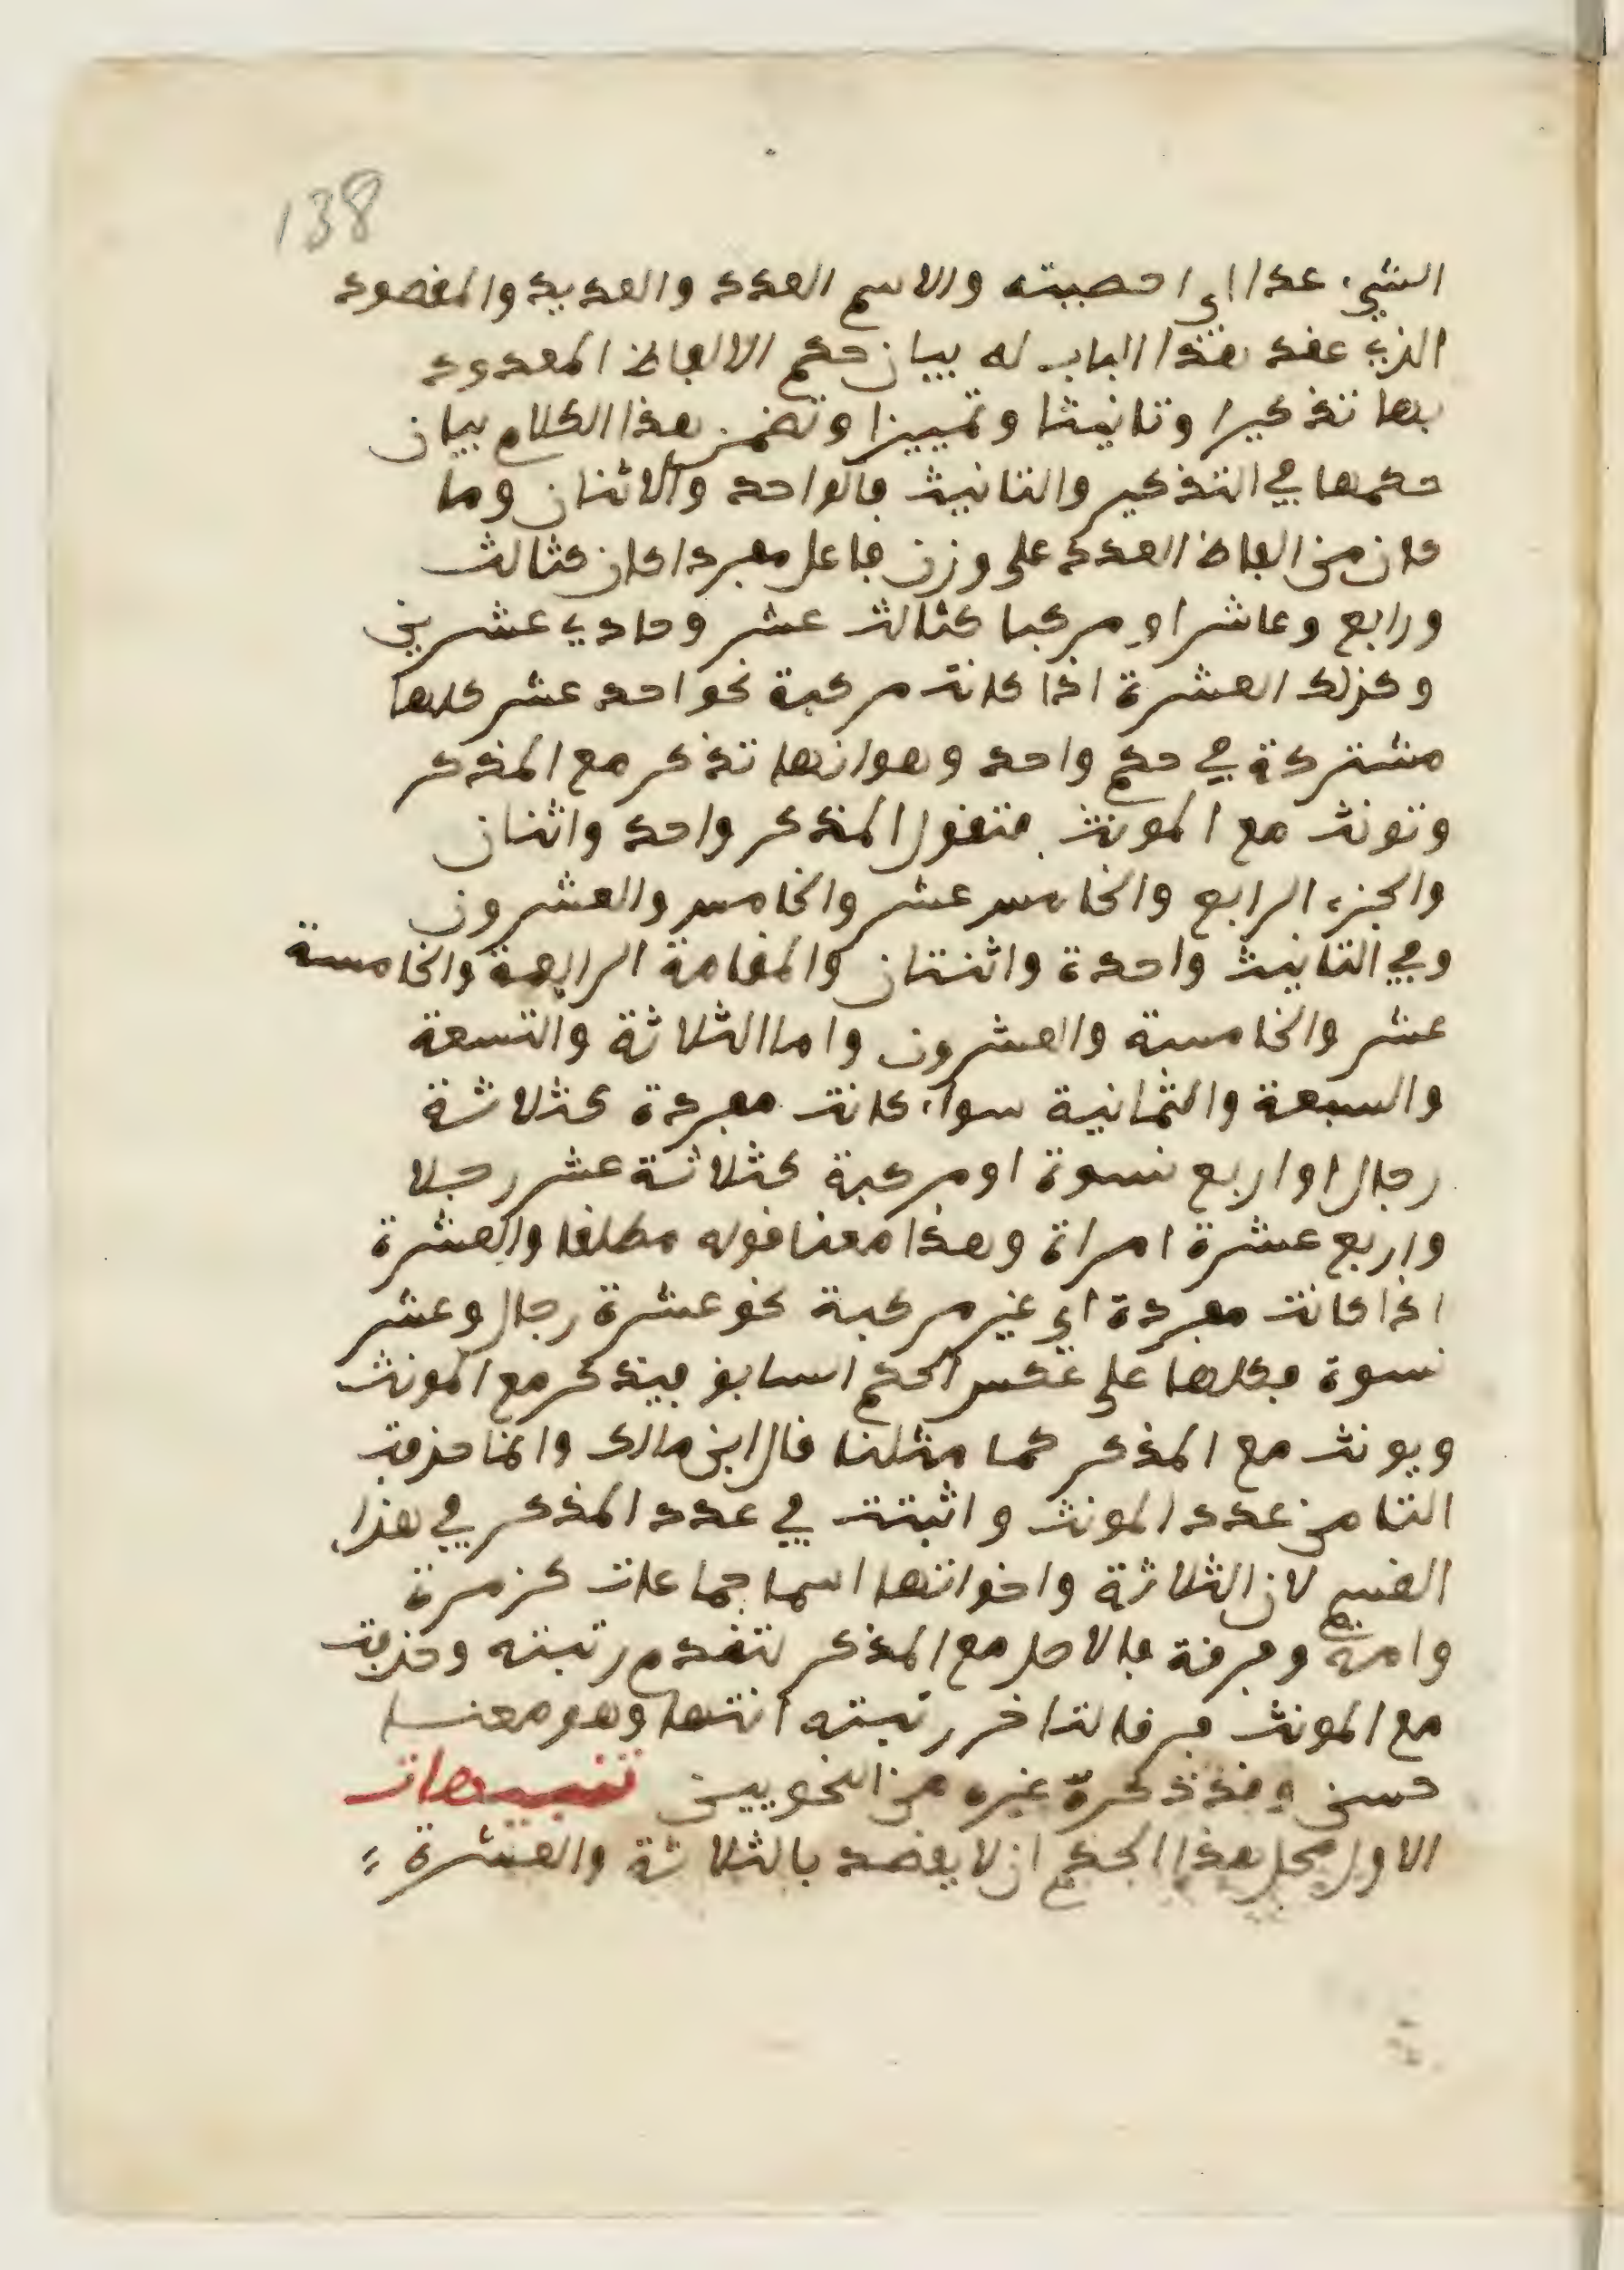 138
الشيء عدا اي احصيته والاسم العدد والعديد والمقصود
الذي عقد هذا الباب له بيان حكم الالفاظ المعدود
بها تذكيرا وتانيثا وتمييزا وتضمن هذا الكلام بيان
حكمها في التذكير والتانيث فالواحد والاثنان وما
كان من الفاظ العدد على وزن فاعل مفردا كان كثالث
ورابع وعاشر او مركبا كثالث عشر وحادي عشرين
وكذلك العشرة اذا كانت مركبة نحو احد عشر كلها
مشتركة في حكم واحد وهو انها تذكر مع المذكر
وتونث مع المونث فتقول المذكر واحد واثنان
والجزء الرابع والخامس عشر والخامس والعشرون
وفي التانيث واحدة واثنتان والمقامة الرابعة والخامسة
عشر والخامسة والعشرون واما الثلاثة والتسعة
والسبعة والثمانية سواء كانت مفردة كثلاثة
رجال او اربع نسوة او مركبة كثلاثة عشر رجلا
واربع عشرة امراة وهذا معنا قوله مطلقا والعشرة
اذا كانت مفردة اي غير مركبة نحو عشرة رجال وعشر
نسوة فكلها على عكس الحكم السابق فيذكر مع المونث
ويونث مع المذكر كما مثلنا قال ابن مالك وانما حذفت
التا من عدد المونث واثبتت في عدد المذكر في هذا
القسم لان الثلاثة واخواتها اسما جماعات كزمرة
وامة وفرقة فالاصل مع المذكر لتقدم رتبته وحذفت
مع المونث فرقا لتاخر رتبته انتها وهو معنا
حسن وقد ذكره غيره من النحويين تنبيهات
الاول محل هذا الحكم ان لا يقصد بالثلاثة والعشرة